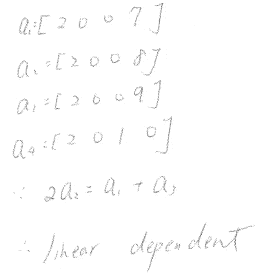 a₁=[2 0 0 7]
a₂=[2 0 0 8]
a₃=[2 0 0 9]
a₄=[2 0 1 0]
∵ 2a₂ = a₁ + a₃
∴ linear dependent